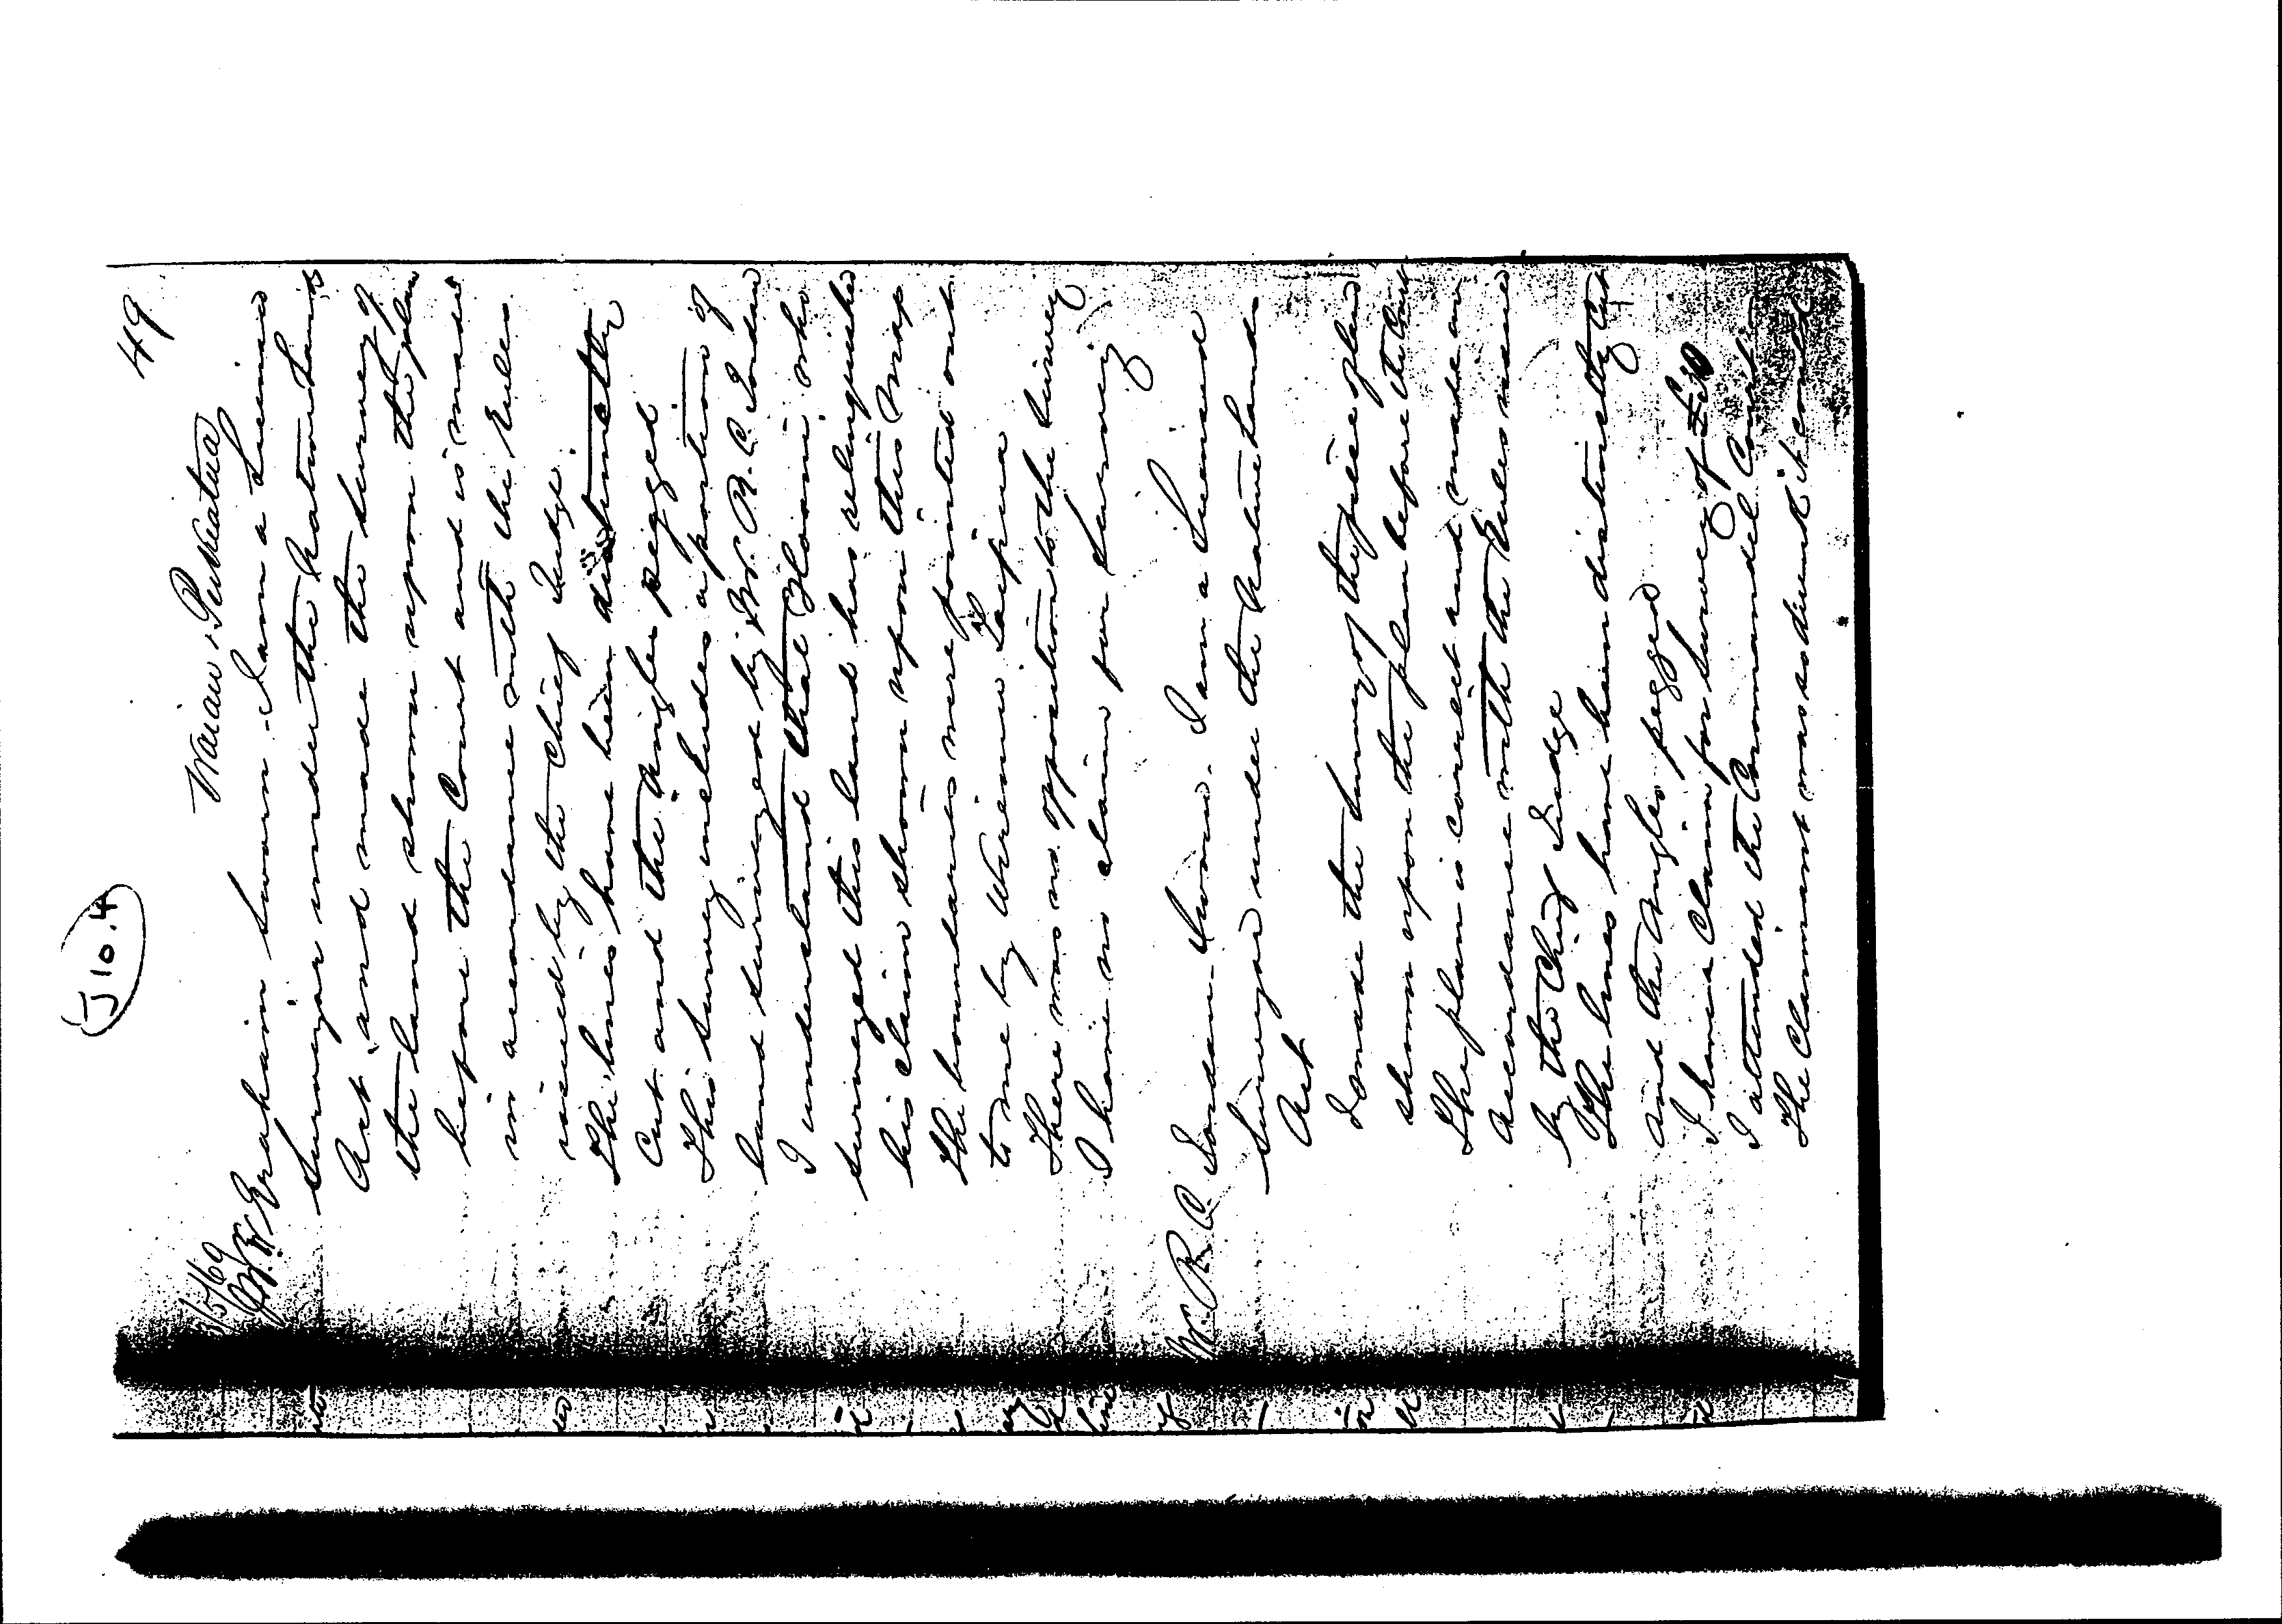 J10.4
49
Waiau, Pukeatua
5/5/69
J.W. Graham sworn - I am a Licensed
Surveyor under the Native Lands
Act and made the survey of
the land shown upon the plan
before the Court and is made
in accordance with the Rules
issued by the Chief Judge.
The lines have been distinctly
Cut and the Angles pegged
This survey includes a portion of
land surveyed by W. R. C. Jordan
I understand that who
surveyed this land has relinquished
his claim shown upon this Map
The boundaries were pointed out
to me by Wiremu
There was no opposition to the Survey
I have no claim for Survey
W. R. C. Jordan - Sworn. I am a Licensed
Surveyor under the Native Lands
Act
I made the Survey of the piece of land
shown upon the plan before the Court
The plan is correct and made in
Accordance with the Rules issued
by the Chief Judge
The lines have been distinctly cut
and the Angles pegged
I have a Claim for Survey of
I attended the Coromandel Court
The Claimant was absent it could